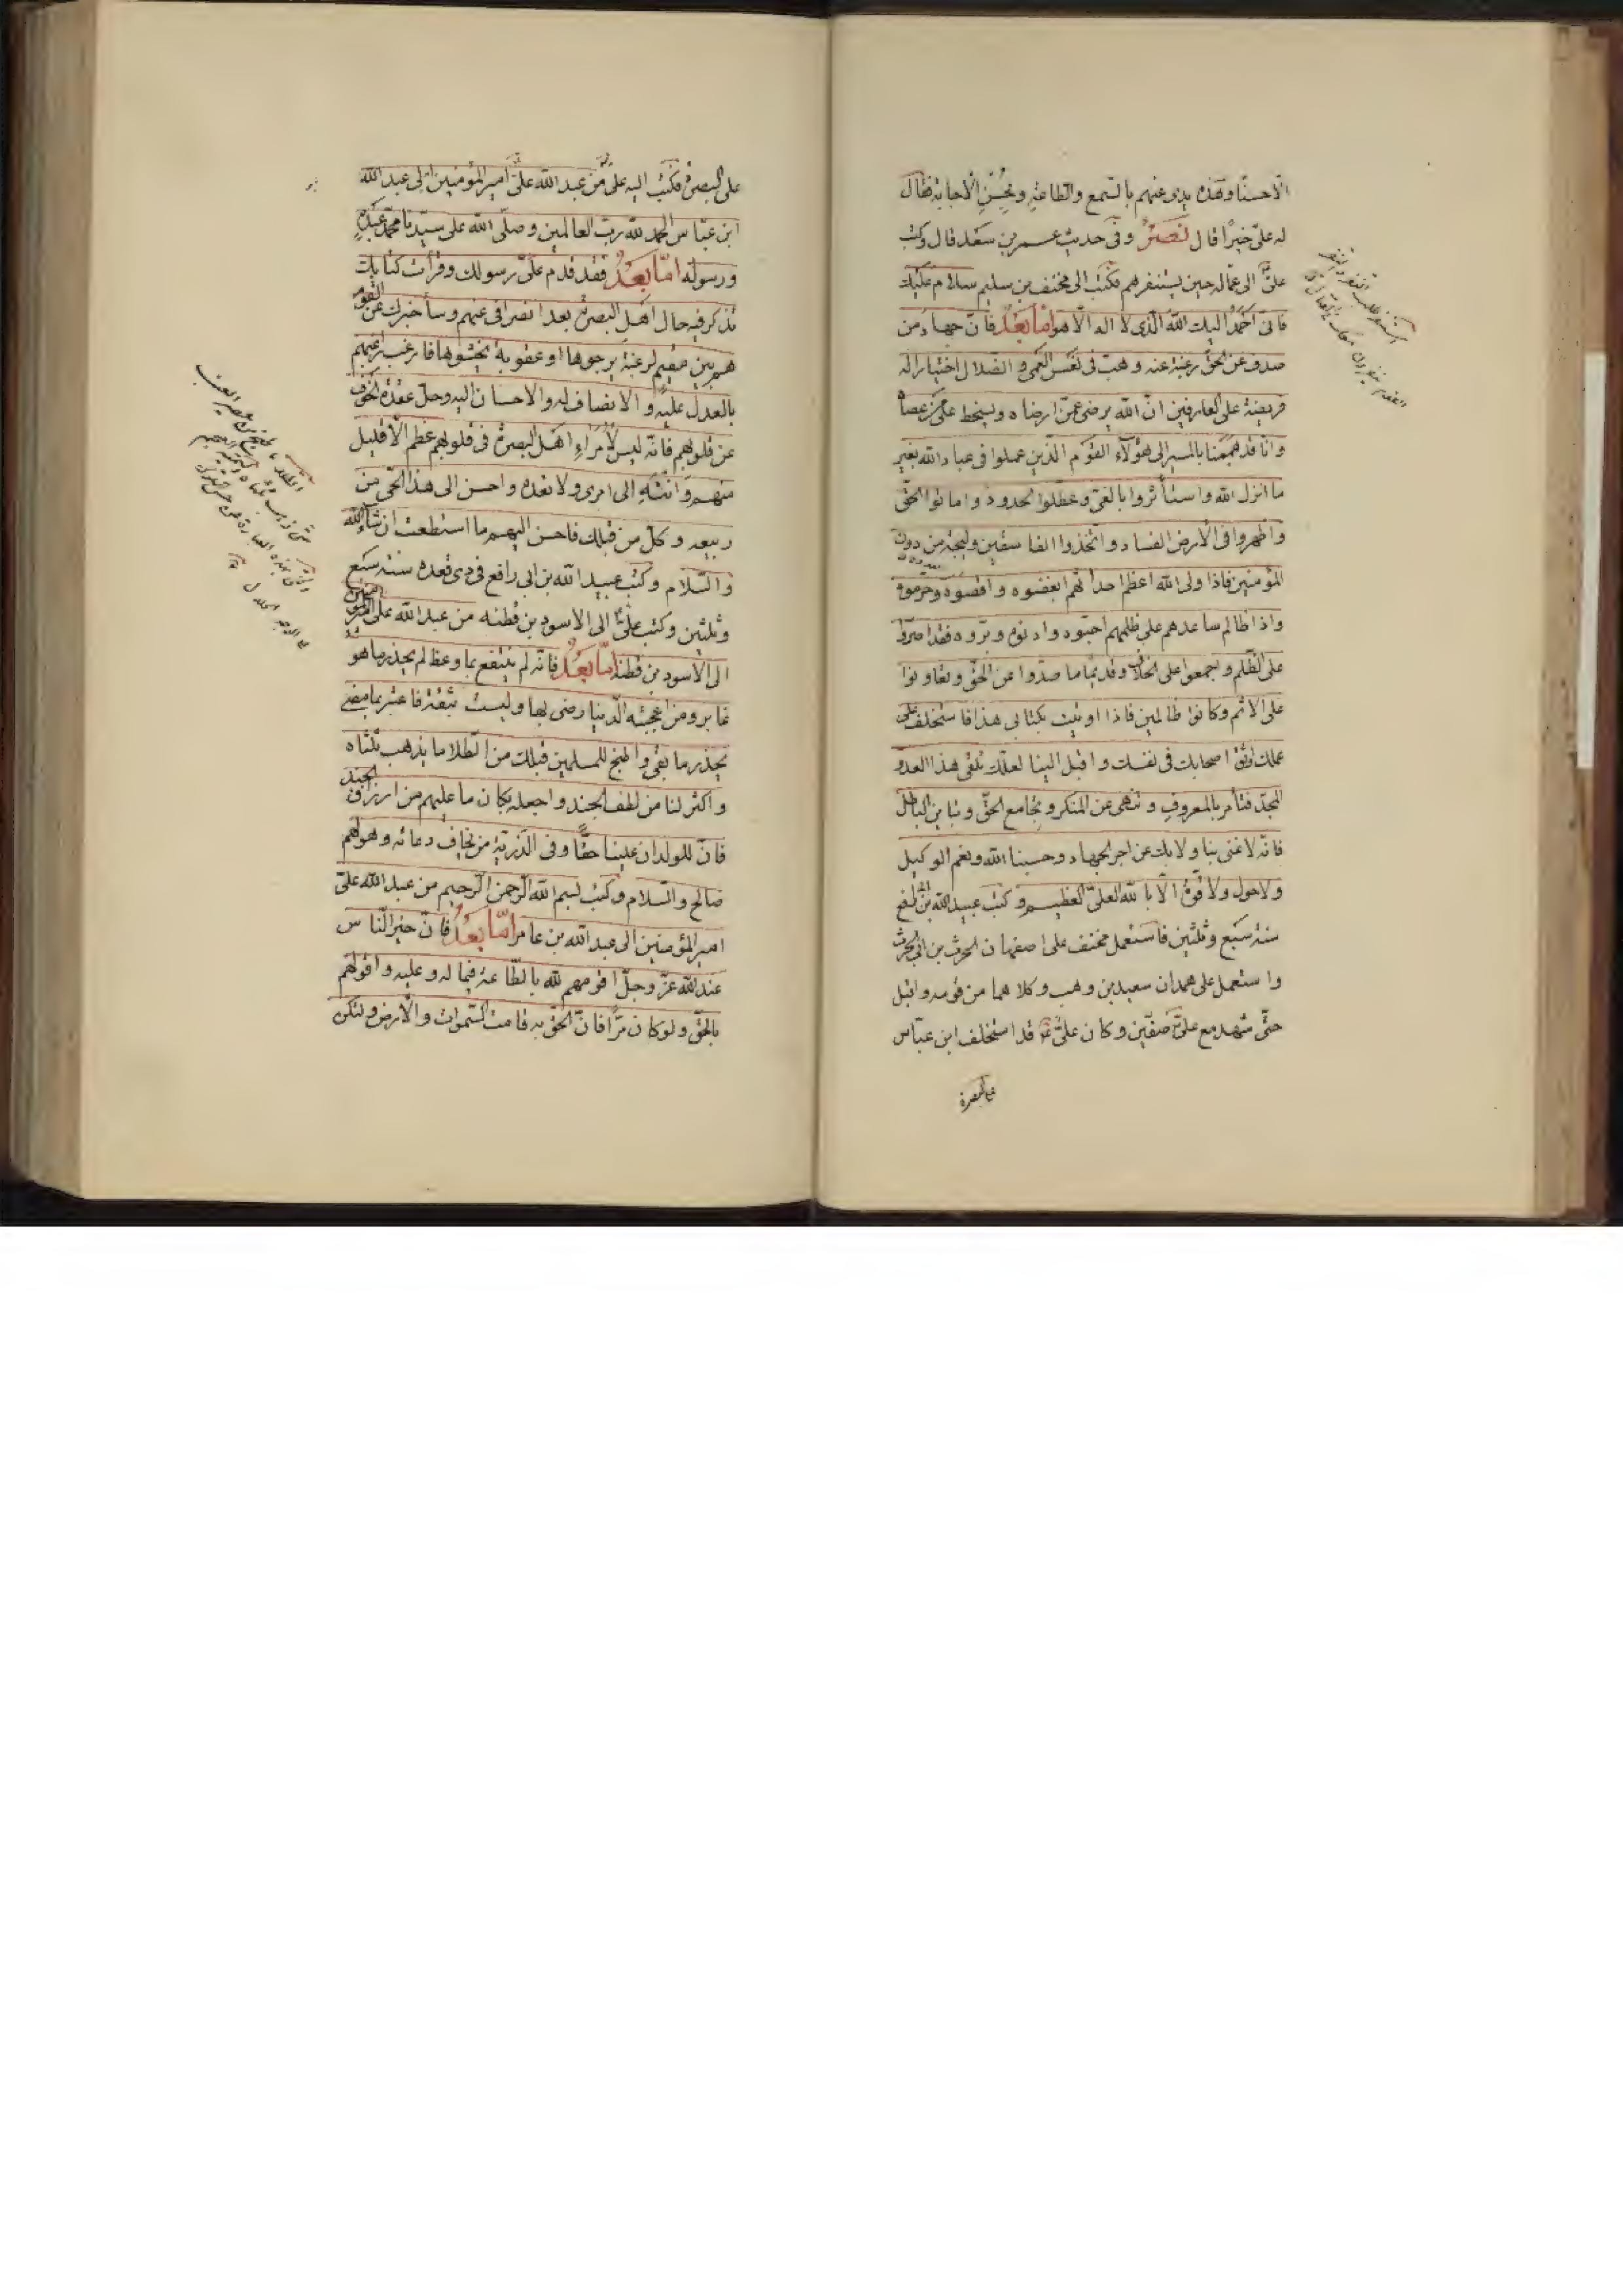 الّا حسنًا وهذه يدى عنهم بالسّمع والطاعة وبحُسْنِ الاجابة فقال
له علىّ خيرًا قال نصرٌ وفى حديث عمر بن سعد قال وكتب
علىّ الى عمّاله حين يستنفرهم فكتب الى مخنف بن سليم سلام عليك
فانى احمدُ اليك الله الّذى لا اله الّا هو امّا بعدُ فانّ جهاد من
صدف عن الحقّ رغبة عنه وهبّ فى نعس العمى والضّلال اختيارا له
فريضة على العارفين انّ الله يرضى عمّن ارضاه ويسخط على من عصاه
وانّا قد هممنا بالمسير الى هؤلآء القوم الّذين عملوا فى عباد الله بغير
ما انزل الله واستأثروا بالفئ وعطّلوا الحدود واماتوا الحقّ
واظهروا فى الأرض الفساد واتّخذوا الفاسقين وليجة من دون
المؤمنين فاذا ولى الله اعظم احداثهم ابغضوه واقصوه وحرموه
واذا ظالم ساعدهم على ظلمهم احبّوه وادنوه وبرّوه فقد اصرّوا
على الظّلم واجمعوا على الخلاف وقديمًا ما صدّوا عن الحقّ وتعاونوا
على الاثم وكانوا ظالمين فاذا اوتيت بكتابى هذا فاستخلف على
عملك اوثق اصحابك فى نفسك واقبل الينا لعلّك تلقى هذا العدوّ
المحلّ فتأمر بالمعروف وتنهى عن المنكر وتجامع الحقّ وتباين الباطل
فانّه لا غنى بنا ولا بك عن اجر الجهاد وحسبنا الله ونعم الوكيل
ولا حول ولا قوّة الّا بالله العلىّ العظيم وكتب عبيد الله بن ابى رافع
سنة سبع وثلثين فاستعمل مخنف على اصفهان الحرث بن ابى الحرث
واستعمل على همدان سعيد بن وهب وكلاهما من قومه واقبل
حتّى شهد مع علىّ صفّين وكان علىّ قد استخلف ابن عبّاس
على البصرة
على البصرة فكتب اليه على من عبد الله علىّ امير المؤمنين الى عبد الله
ابن عبّاس الحمد لله ربّ العالمين وصلّى الله على سيّدنا محمّد عبده
ورسوله امّا بعدُ فقد قدم علىّ رسولك وقرأت كتابك
تذكر فيه حال اهل البصرة بعد انصرافى عنهم وسأخبرك عن القوم
هم بين مقيم لرغبة يرجوها او عقوبة يخشوها فارغب راغبهم
بالعدل عليه والانصاف له والاحسان اليه وحلّ عقدة الخوف
عن قلوبهم فانّه ليس لأمراء اهل البصرة فى قلوبهم عظم الّا قليل
منهم وانتهِ الى امرى ولا تعده واحسن الى هذا الحىّ من
ربيعه وكلّ من قبلك فاحسن اليهم ما استطعت ان شاء الله
والسّلام وكتب عبيد الله بن ابى رافع فى ذى قعده سنة سبع
وثلثين وكتب علىّ الى الاسود بن قطنه من عبد الله على امير المؤمنين
الى الاسود بن قطنة امّا بعدُ فانّه لم ينتفع بما وعظ لم يحذر ما هو
غابر ومن اعجبته الدّنيا رضى بها وليست بثقة فاعتبر بما مضى
يحذر ما بقى واطبخ للمسلمين قبلك من الطّلا ما يذهب ثلثاه
واكثر لنا من لطف الجند واجعله بكان ما عليهم من ارزاق الجند
فانّ للولدان علينا حقًّا وفى الذّريّة من يخاف دعائه وهو لهم
صالح والسّلام وكتب بسم الله الرّحمن الرّحيم من عبد الله علىّ
امير المؤمنين الى عبد الله بن عامر امّا بعدُ فانّ خير النّاس
عند الله عزّ وجلّ اقومهم لله بالطّاعة فيما له وعليه واقولهم
بالحقّ ولو كان مرًّا فانّ الحقّ به قامت السّموات والأرض ولتكن